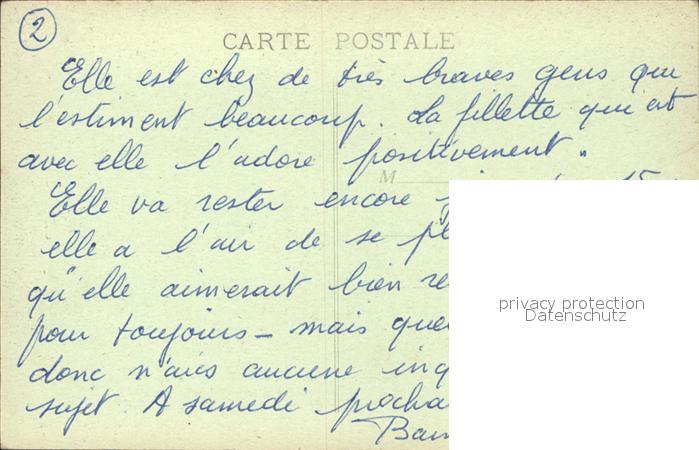 2
CARTE POSTALE
Elle est chez de très braves gens qui
l'estiment beaucoup. La fillette qui est
avec elle l'adore positivement.
M
Elle va rester encore
elle a l'air de se
qu'elle aimerait bien
pour toujours - mais
donc n'aies aucune
sujet. A samedi
privacy protection
Datenschutz